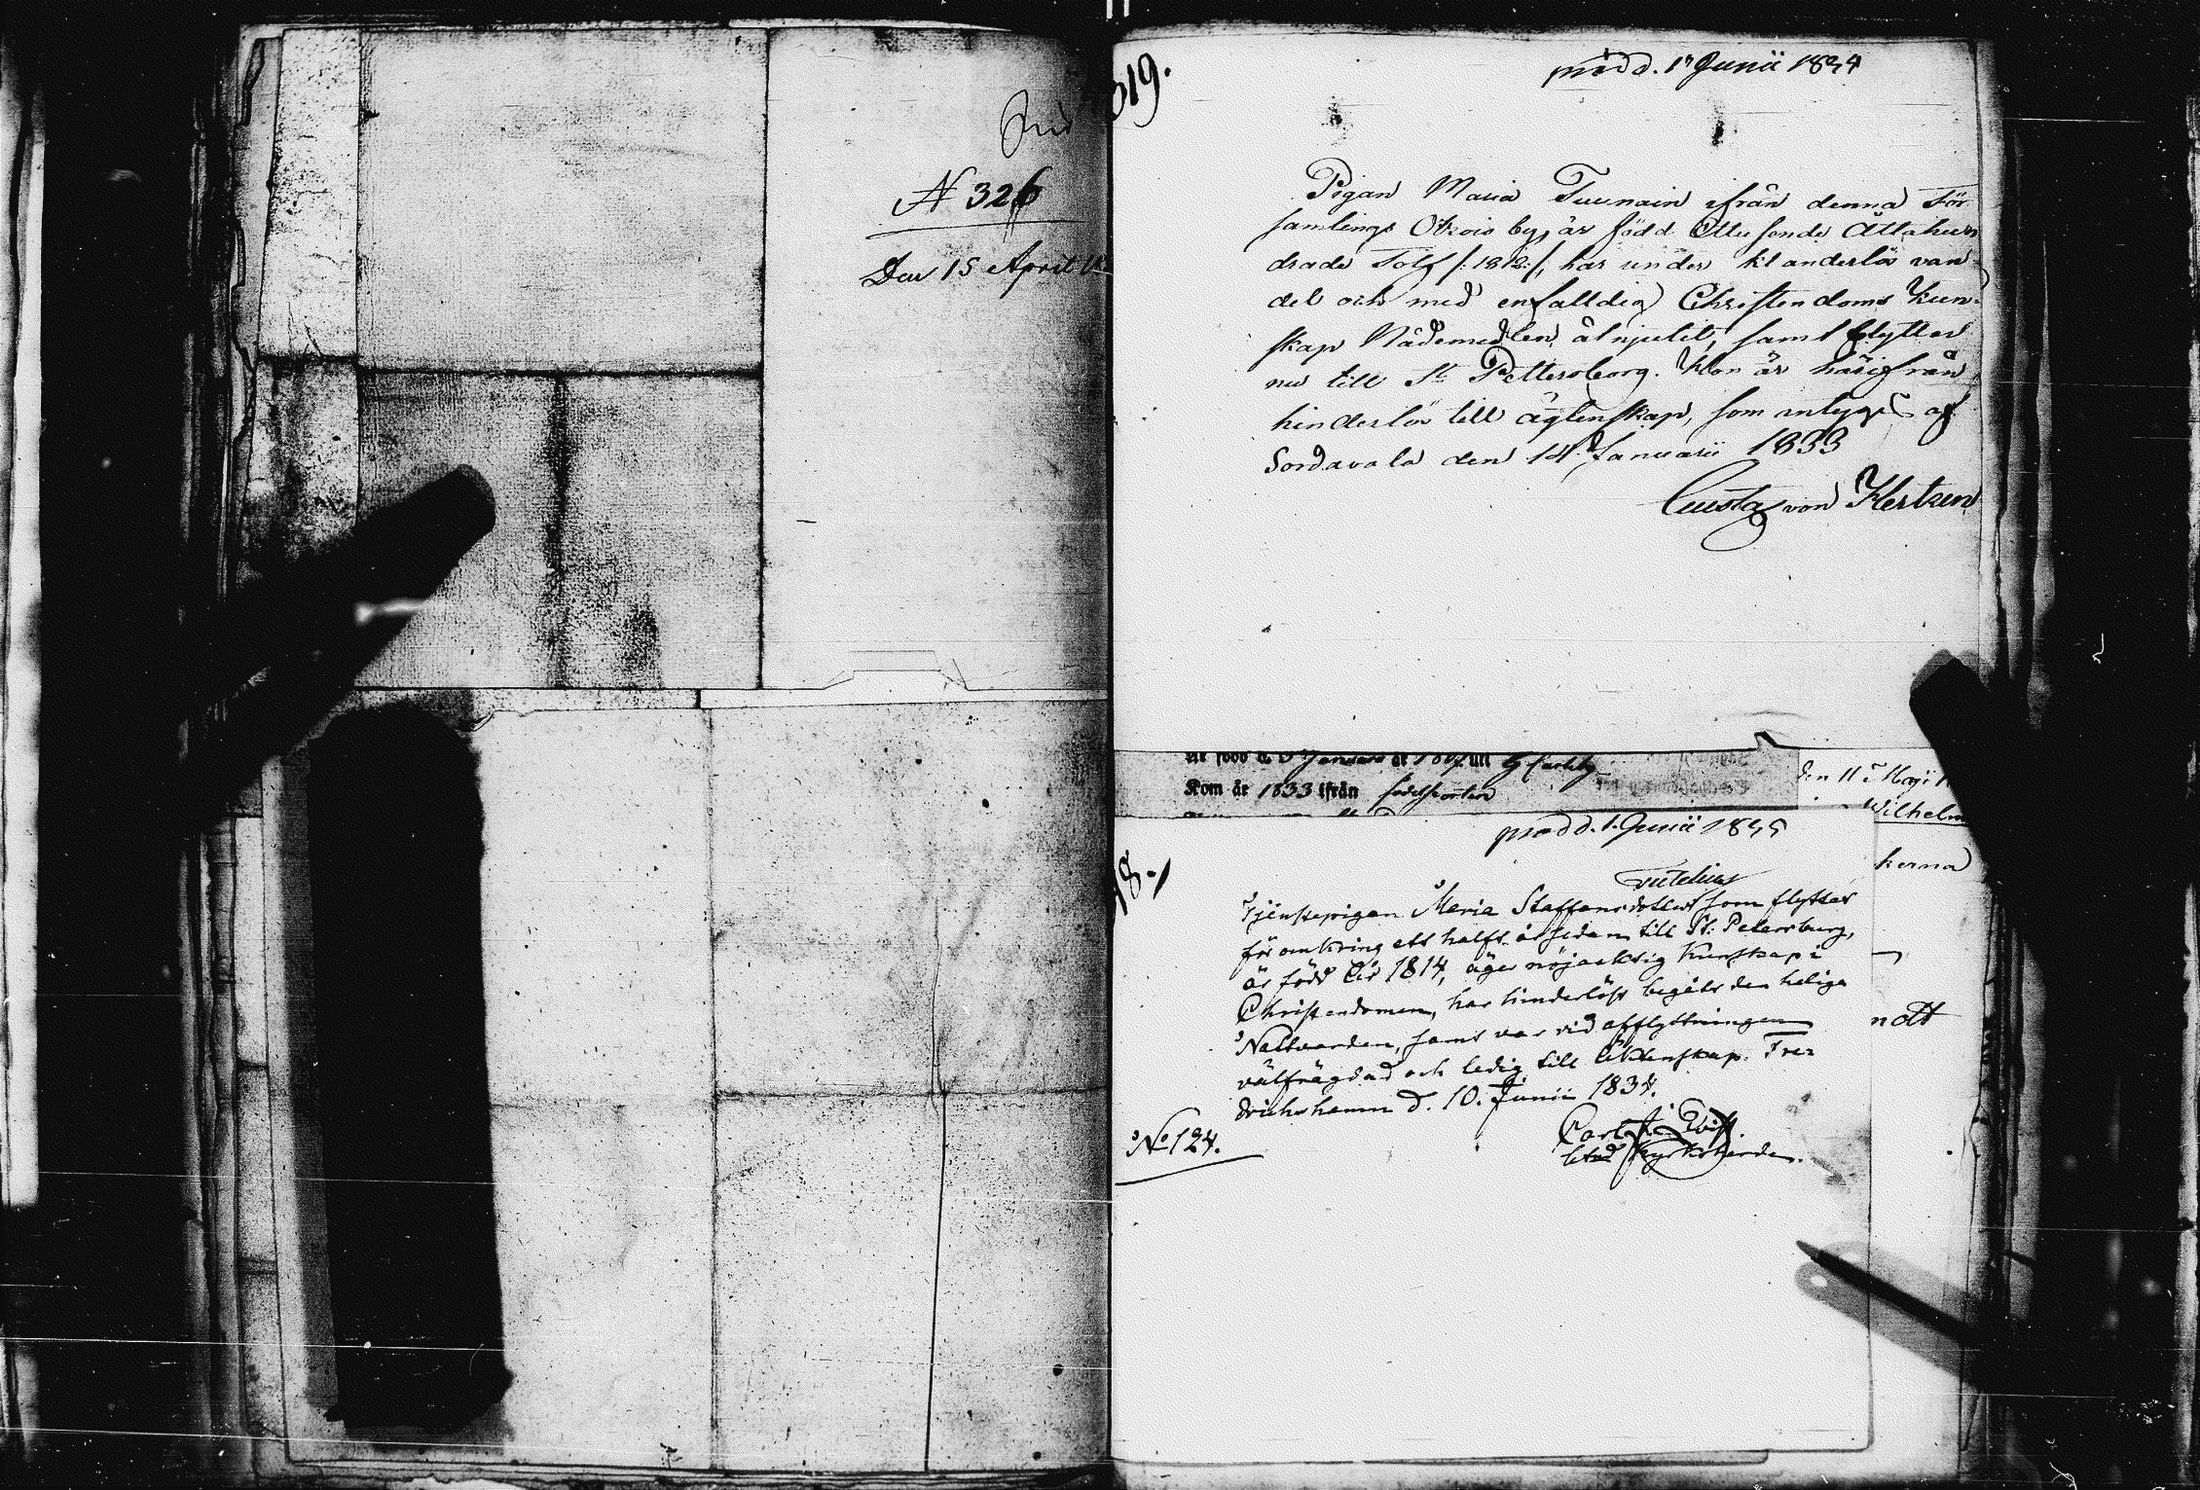 N 326
Den 15 April
319.
prodd. 1 Junii 1834
Pigan Maria Tuunain ifrån denna För
samlings Otsois by, är född Ettusende Åttahun
drade Tolf /: 1812 :/, har under klanderlös van
del och med enfalldig Christendoms kun
skap Nådemedlen åtnjutit, samt flyttar
nu till St Pettersborg. Hon är härifrån
hinderlös till ägtenskap, som intygas af
Sordavala den 14 Januarii 1833
Gustaf von Hertzen
är född d. Januari år 18 uti G Carleby
Kom år 1833 ifrån födelseorten
den 11 Maji
Wilhelm
kerna
nott
prodd. 1. Junii 1835
18.
Tjenstepigan Maria Staffansdotter som flyttat
för omkring ett halft år sedan till St: Petersburg,
är född År 1814, äger nöjacktig kunskap i
Christendomen, har hinderlöst begått den heliga
Nattvarden, samt var vid afflyttningen
välfrägdad och ledig till Äktenskap. Fre
drichshamn d. 10. Junii 1834.
Carl
Kyrkoherde.
No 124.